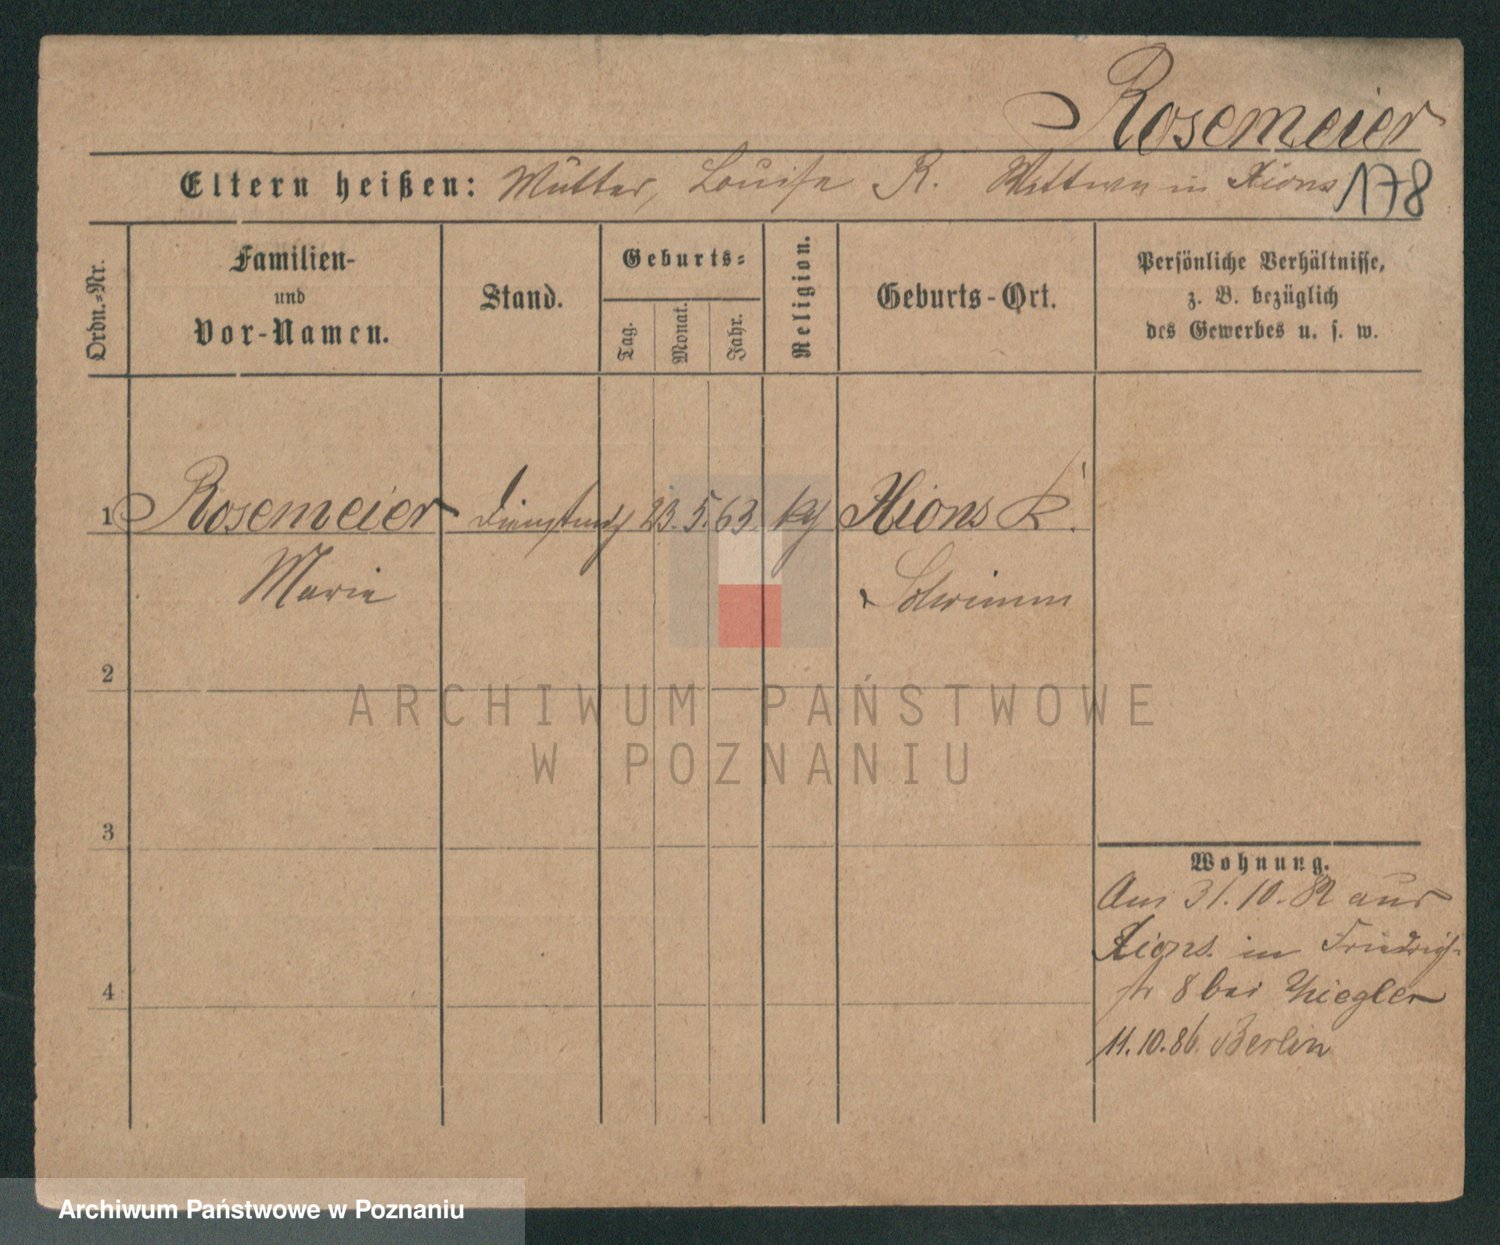 Rosemeier
Eltern heißen: Mutter, Louise R. Wittwe in Xions 178
Ordn.-Nr.
Familien-
und
Vor-Namen.
Stand.
Geburts-
Tag.
Monat.
Jahr.
Religion.
Geburts-Ort.
Persönliche Verhältnisse,
z. B. bezüglich
des Gewerbes u. s. w.
1 Rosemeier 23. 5. 63. Xions K.
Marie Schrimm
2
3
4
Wohnung.
Am 31.10.82 aus
Xions in Friedrich-
str 8 bei Ziegler
11.10.86. Berlin
ARCHIWUM PAŃSTWOWE
W POZNANIU
Archiwum Państwowe w Poznaniu